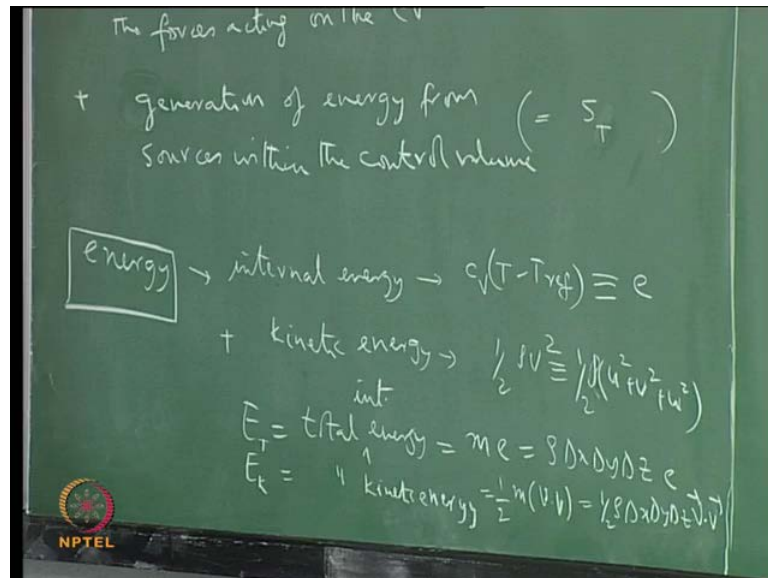 The forces acting on the CV
+ generation of energy from (= S_T)
sources within the control volume
energy → internal energy → c_v(T - T_ref) ≡ e
+ kinetic energy → 1/2 ρV² ≡ 1/2 ρ(u²+v²+w²)
int.
E_T = total energy = me = ρ Δx Δy Δz e
E_k = " kinetic energy = 1/2 m(V·V) = 1/2 ρ Δx Δy Δz V⃗·V⃗
NPTEL